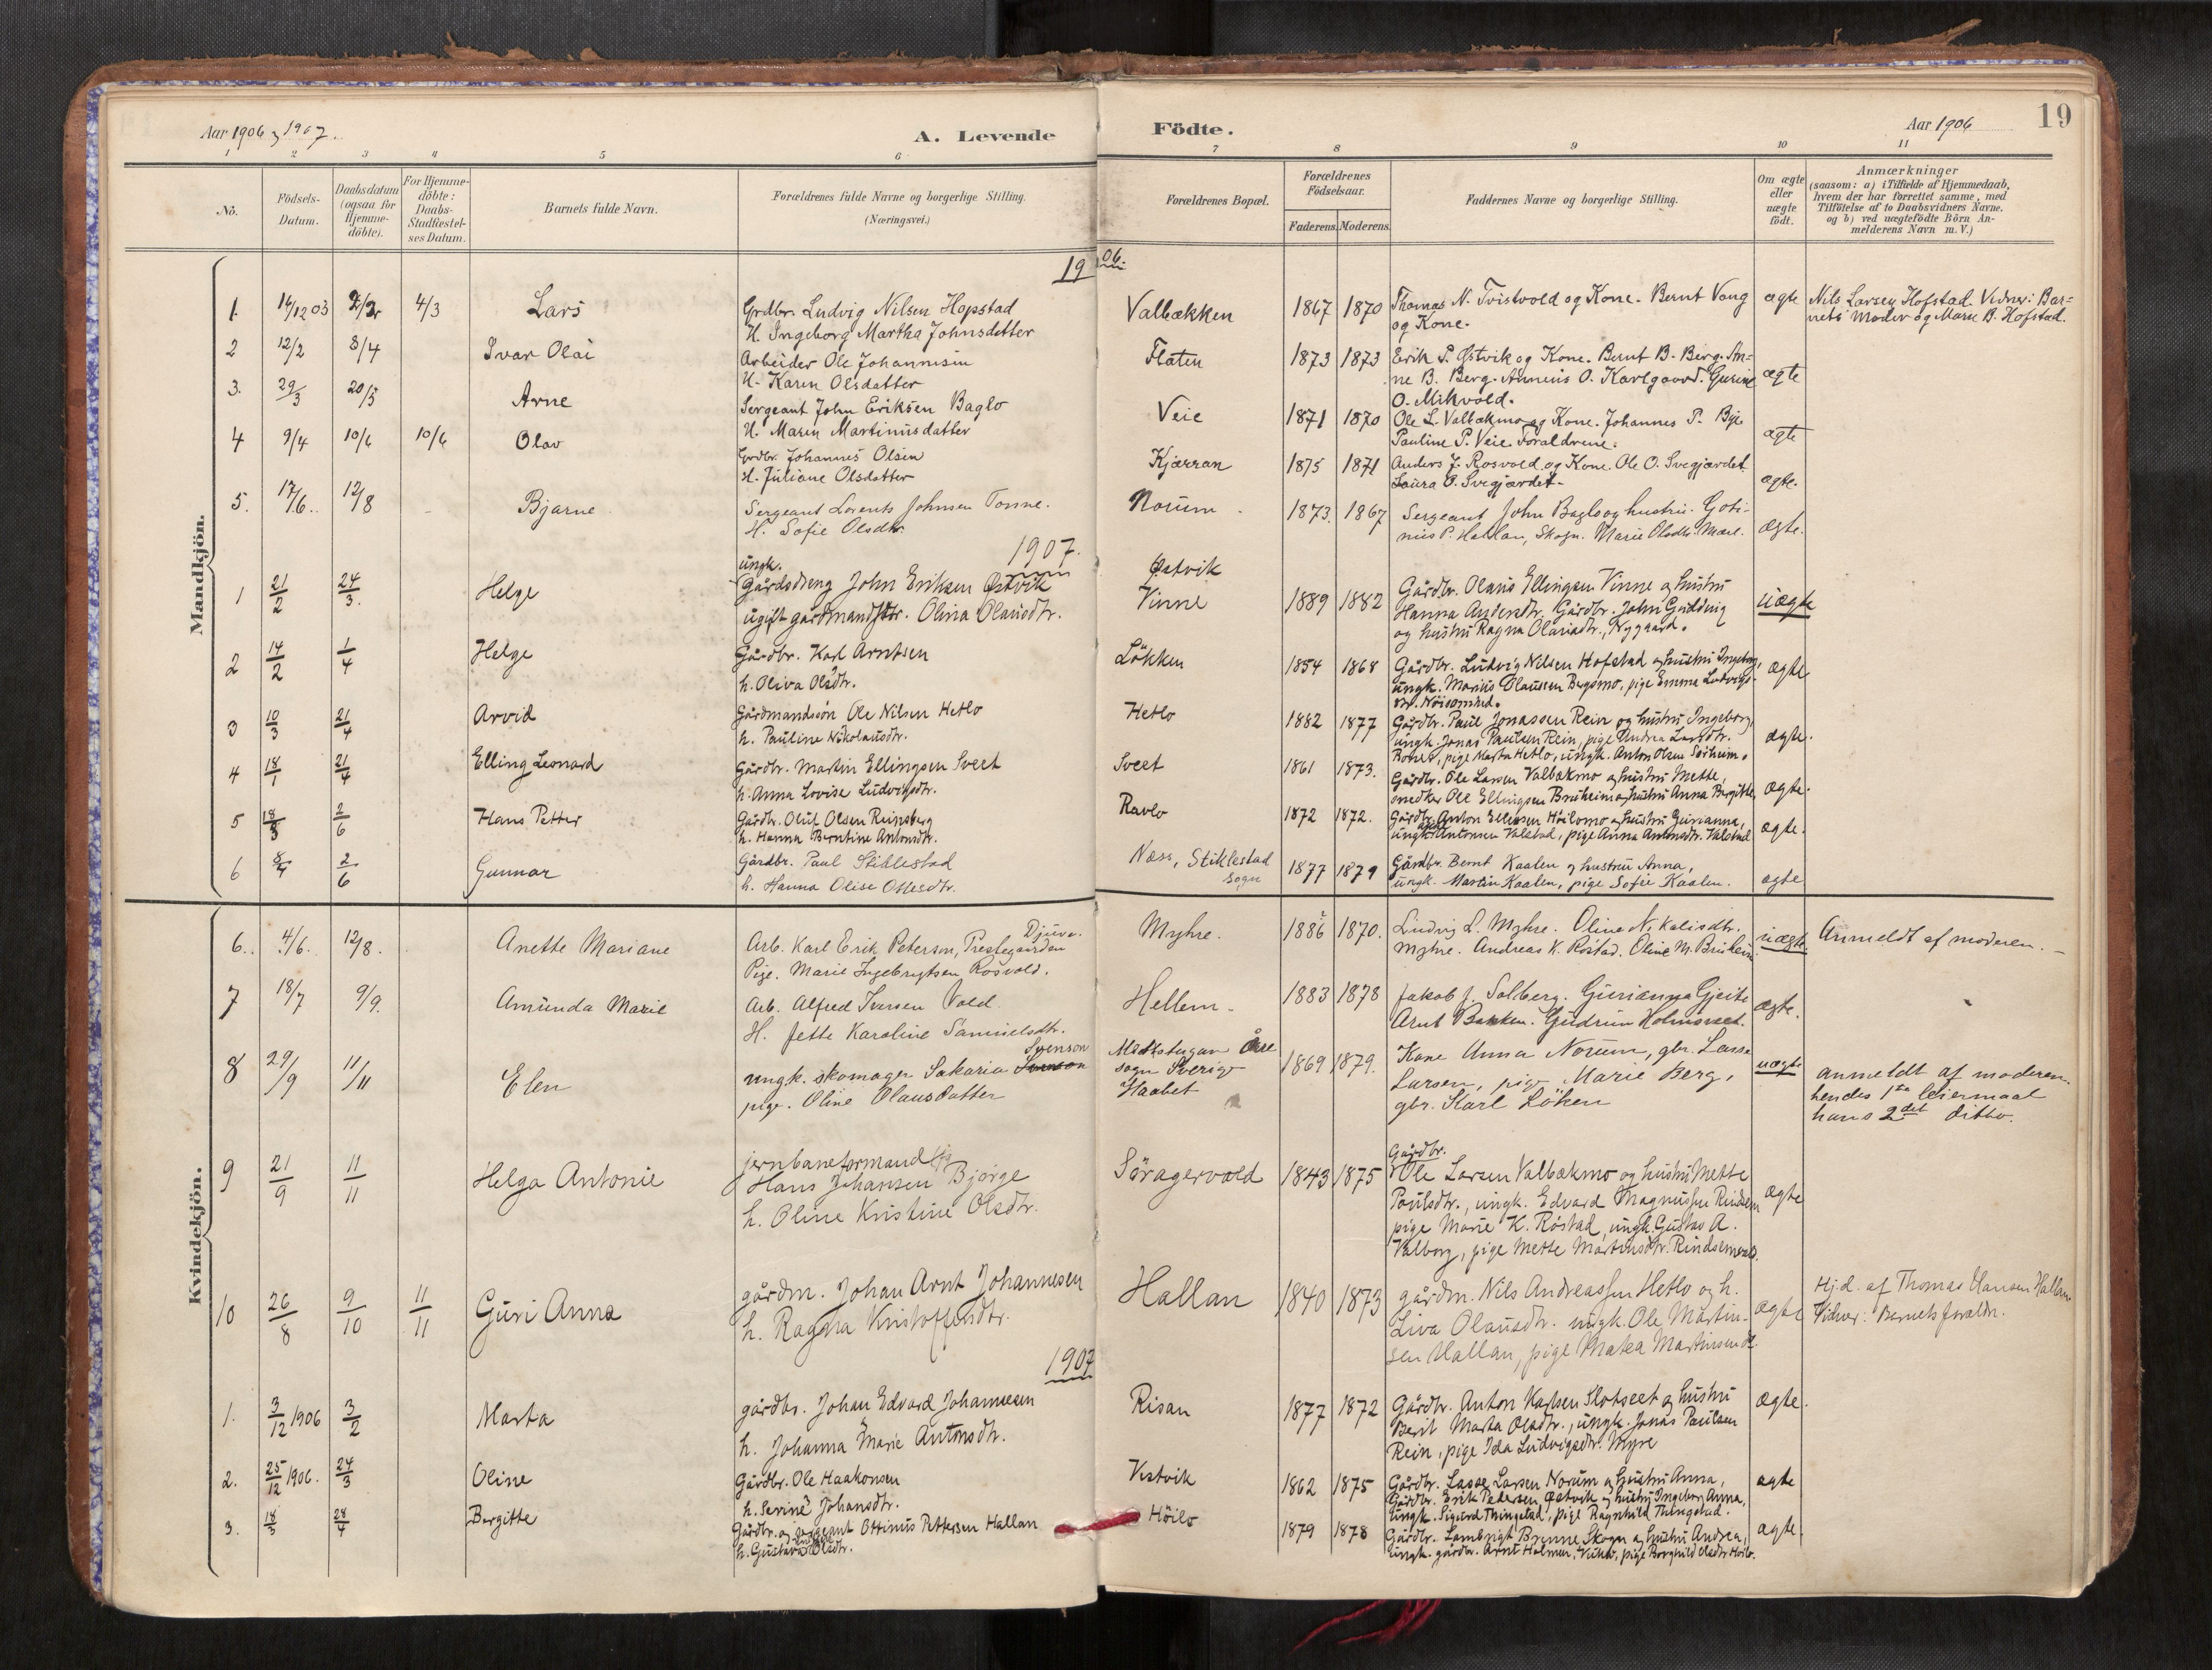 Aar 1906 & 1907.
A. Levende
Födte.
Aar 1906
19
1 2 3 4 5 6 7 8 9 10 11
No.
Födsels-
Datum.
Daabsdatum
(ogsaa for
Hjemme-
döbte).
For Hjemme-
döbte:
Daabs-
Stadfæstel-
ses Datum.
Barnets fulde Navn.
Forældrenes fulde Navne og borgerlige Stilling.
(Næringsvei.)
Forældrenes Bopæl.
Forældrenes
Födselsaar.
Faderens. Moderens.
Faddernes Navne og borgerlige Stilling.
Om ægte
eller
uægte
födt.
Anmærkninger
(saasom: a) i Tilfælde af Hjemmedaab,
hvem der har forrettet samme, med
Tilföielse af to Daabsvidners Navne.
og b) ved uægtefödte Börn An-
melderens Navn m. V.)
Mandkjön.
1906.
1. 14/12 03 4/3 Lars
Grdbr. Ludvig Nilsen Hopstad
H. Ingeborg Martha Johnsdatter
Valbækken 1867 1870
Thomas N. Tvistvold og Kone. Bernt Vang
og Kone.
ægte
Nils Larsen Hofstad. Vidner: Bar=
nets Moder og Marie B. Hofstad.
2 12/2 8/4 Ivar Olai
Arbeider Ole Johannesen
H. Karen Olsdatter
Flaten 1873 1873
Erik P. Østvik og Kone. Bernt B. Berg. An=
ne B. Berg. Anneus O. Karlgaard. Gurine
O. Mikvold.
ægte
3. 29/3 20/5 Arne
Sergeant John Eriksen Baglo
H. Maren Martinusdatter
Veie 1871 1870
Ole L. Valbækmo og Kone. Johannes P. Bye
Pauline P. Veie. Forældrene.
ægte
4 9/4 10/6 10/6 Olav
Grdbr. Johannes Olsen
H. Juliane Olsdatter
Kjærran 1875 1871
Anders J. Rosvold og Kone. Ole O. Svegjærdet
Laura O. Svegjærdet.
ægte.
5. 17/6. 12/8 Bjarne
Sergeant Lorents Johnsen Tonne.
H. Sofie Olsdtr.
Norum 1873. 1867
Sergeant John Baglo og hustru. Goti-
nius P. Hallan, Skogn. Marie Olsdtr. Mæl.
ægte.
1907.
1 21/2 24/3. Helge
ungk.
Gårdsdreng John Eriksen Østvik
ugift gårdmandsdtr. Olina Olausdtr.
Østvik
Vinne 1889 1882
Gårdbr. Olaus Ellingsen Vinne og hustru
Hanna Andersdtr, Gårdbr. John Gudding
og hustru Ragna Olariadtr., Nygaard.
uægte
2 14/2 1/4 Helge
Gårdbr. Karl Arntsen
h. Oliva Olsdtr.
Lökken 1854 1868
Gårdbr. Ludvig Nilsen Hofstad og hustru Ingeborg,
ungk. Marius Olaussen Bergsmo, pige Emma Ludvigs-
ægte
3 10/3 21/4 Arvid
Gårdmandssön Ole Nilsen Hetlo
h. Pauline Nikolausdtr.
Hetlo 1882 1877
Gårdbr. Paul Jonassen Rein og hustru Ingeborg,
ungk. Jonas Paulsen Rein, pige Andrea Larsdtr.
pige Marta Hetlo, ungk. Anton Olsen Sørheim.
ægte.
4 18/1 21/4 Elling Leonard
Gårdbr. Martin Ellingsen Sveet
h. Anna Lovise Ludvigsdtr.
Sveet 1861 1873.
Gårdbr. Ole Larsen Valbækmo og hustru Mette,
snedker Ole Ellingsen Bruheim og hustru Anna Bergitte,
ægte.
5 18/3 2/6 Hans Petter
Gårdbr. Oluf Olsen Reinsberg
h. Hanna Berntine Antonsdtr.
Ravlo 1872 1872.
Gårdbr. Anton Ellingsen Höilomo og hustru Gurianna,
ungk. Antonsen Valstad, pige Anna Antonsdtr. Valstad
ægte.
6 8/4 2/6 Gunnar
Gårdbr. Paul Stiklestad
h. Hanna Olise Ottesdtr.
Næss, Stiklestad
sogn 1877 1879
Gårdbr. Bernt Kaalen og hustru Anna,
ungk. Martin Kaalen, pige Sofie Kaalen.
ægte
Kvindekjön.
6. 4/6. 12/8. Anette Mariane
Djuve.
Arb. Karl Erik Peterson, Prestegården
Pige. Marie Ingebrigtsen Rosvold.
Myhre. 1886 1870.
Ludvig L. Myhre. Oline Nikolisdtr.
Myhre. Andreas K. Röstad. Oline M. Bruheim
uægte
Anmeldt af moderen.
7 18/7 9/9. Amunda Marie
Arb. Alfred Iversen Vold
H. Jette Karoline Samuelsdtr.
Hellem 1883 1878
Jakob J. Solberg. Gurianna Gjeite
Arnt Bakken. Gudrun Holmsveet.
ægte.
8 29/9 11/11 Elen
Svenson
ungk. skomager Sakaria
pige. Oline Olausdatter
Mattstugan Åre
sogn Sverige
Haabet 1869 1879.
Kone Anna Norum, gbr. Lasse
Larsen, pige Marie Berg,
gbr. Karl Löken
uægte
anmeldt af moderen.
hendes 1ste leiermaal
hans 2det ditto.
9 21/9 11/11 Helga Antonie
jernbaneformand
Hans Johansen Bjørge
h. Oline Kristine Olsdtr.
Söragervold 1843 1875
Gårdbr.
Ole Larsen Valbækmo og hustru Mette
Paulsdtr., ungk. Edvard Magnussen Rindsem
pige Marie K. Röstad, ungk. Gustav A.
Valborg, pige Mette Martinsdtr. Rindsemval
ægte
10 26/8 9/10 11/11 Guri Anna
gårdm. Johan Arnt Johannesen
h. Ragna Kristoffersdtr.
Hallan 1840 1873
gårdm. Nils Andreassen Hetlo og h.
Liva Olausdtr. ungk. Ole Martin-
sen Hallan, pige Matea Martinsen do.
ægte
Hj.d. af Thomas Hansen Hallan.
Vidner: Barnets forældr.
1907
1. 3/12 1906 3/2 Marta
gårdbr. Johan Edvard Johannesen
h. Johanna Marie Antonsdtr.
Risan 1877 1872
Gårdbr. Anton Karlsen Slotsveet og hustru
Berit Marta Olsdtr., ungk. Jonas Paulsen
Rein, pige Ida Ludvigsdtr. Myre
ægte.
2. 25/12 1906. 24/3 Oline
Gårdbr. Ole Haakonsen
h. Serine Johansdtr.
Vestvik 1862 1875
Gårdbr. Lasse Larsen Norum og hustru Anna,
Gårdbr. Erik Pedersen Østvik og hustru Ingeborg Anna,
ungk. Sigurd Thingstad, pige Ragnhild Thingstad.
ægte
3. 18/3 28/4 Bergitte
Gårdbr. og sergeant Ottinius Pettersen Hallan
h. Gustava Olsdtr.
Höilo 1879 1878
Gårdbr. Lambrigt Brenne Skogn og hustru Andrea,
ungk. gårdbr. Arnt Holmen, Vukku, pige Borghild Olsdtr Höilo.
ægte.